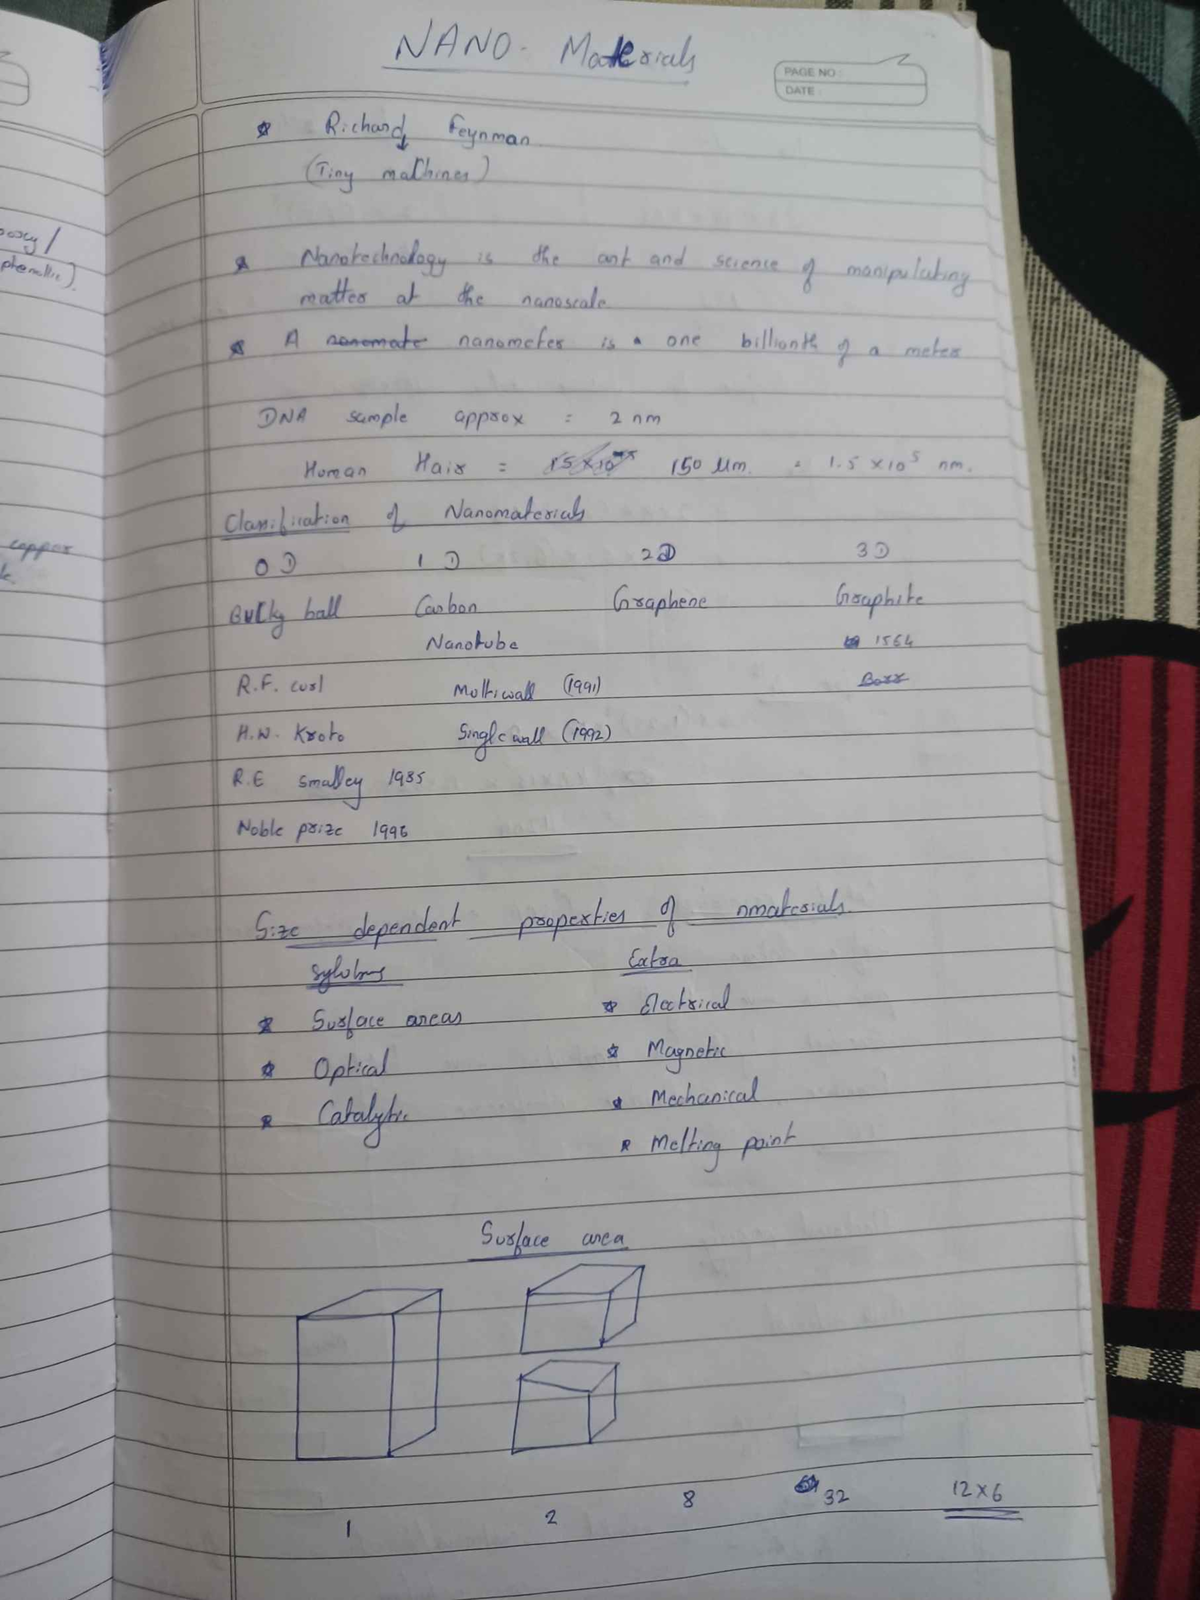 NANO- Materials
PAGE NO :
DATE :
Richard Feynman
(Tiny machines)
Nanotechnology is the art and science of manipulating
matter at the nanoscale
A nanomate nanometer is a one billionth of a meter
DNA sample approx = 2 nm
Human Hair = 15 x 10 150 µm = 1.5 x 10⁵ nm.
Classification of Nanomaterials
0 D 1 D 2D 3 D
Bucky ball Carbon Graphene Graphite
Nanotube 1564
R.F. curl Multiwall (1991)
H.W. Kroto Single wall (1992)
R.E Smalley 1985
Noble prize 1996
Size dependent properties of nmaterials
Syllabus Extra
Surface areas Electrical
Optical Magnetic
Catalytic Mechanical
Melting point
Surface area
1 2 8 32 12 x 6